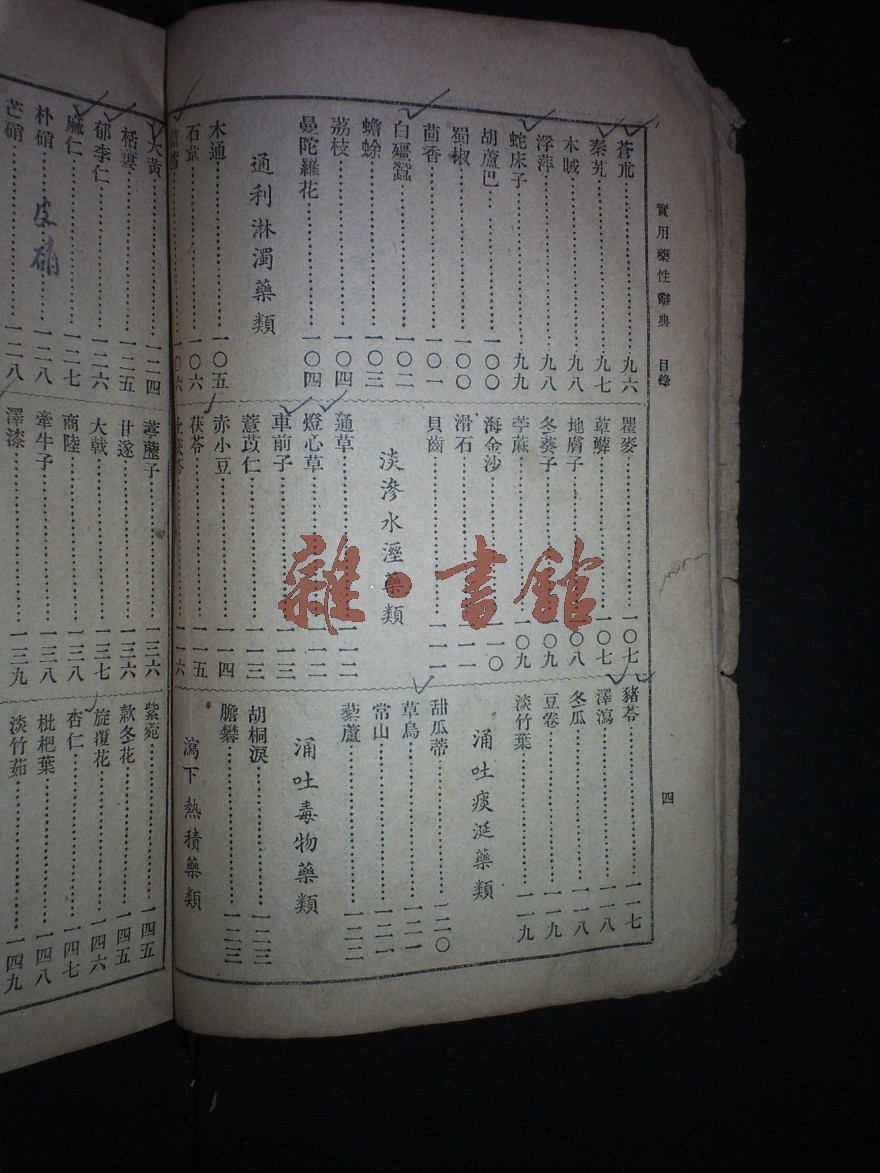 實用藥性辭典 目錄 四
蒼朮 九六
秦艽 九七
木賊 九八
浮萍 九八
蛇床子 九九
胡蘆巴 一〇〇
蜀椒 一〇〇
茴香 一〇一
白殭蠶 一〇二
蟾蜍 一〇三
荔枝 一〇四
曼陀羅花 一〇四
通利淋濁藥類
木通 一〇五
石韋 一〇六
一〇六
瞿麥 一〇七
萆薢 一〇七
地膚子 一〇八
冬葵子 一〇九
苧蔴 一〇九
海金沙 一一〇
滑石 一一一
貝齒 一一一
淡滲水溼藥類
通草 一一二
燈心草 一一二
車前子 一一三
薏苡仁 一一三
赤小豆 一一四
茯苓 一一五
一一六
豬苓 一一七
澤瀉 一一八
冬瓜 一一八
豆卷 一一九
淡竹葉 一一九
涌吐痰涎藥類
甜瓜蒂 一二〇
草烏 一二一
常山 一二一
藜蘆 一二二
涌吐毒物藥類
胡桐淚 一二三
膽礬 一二三
瀉下熱積藥類
大黃 一二四
栝蔞 一二五
郁李仁 一二六
麻仁 一二七
朴硝 一二八
皮硝
芒硝 一二八
葶藶子 一三六
甘遂 一三六
大戟 一三七
商陸 一三八
牽牛子 一三八
澤漆 一三九
紫菀 一四五
款冬花 一四五
旋覆花 一四六
杏仁 一四七
枇杷葉 一四八
淡竹茹 一四九
雜·書館